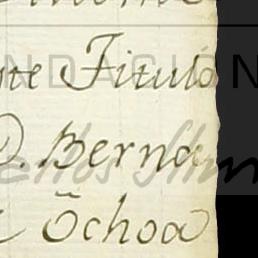 te Titulo
D. Berna
Õchoa